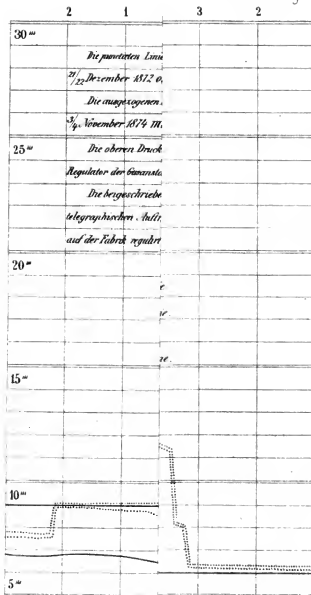 2 1 3 2
30'''
Die punctirten Lini
21/22 Dezember 1872 v.
Die ausgezogenen
3/4 November 1874 m.
25'''
Die oberen Druck
Regulator der Gasansta
Die beigeschriebe
telegraphischen Auftr
auf der Fabrik regulirt
20'''
15'''
10'''
5'''